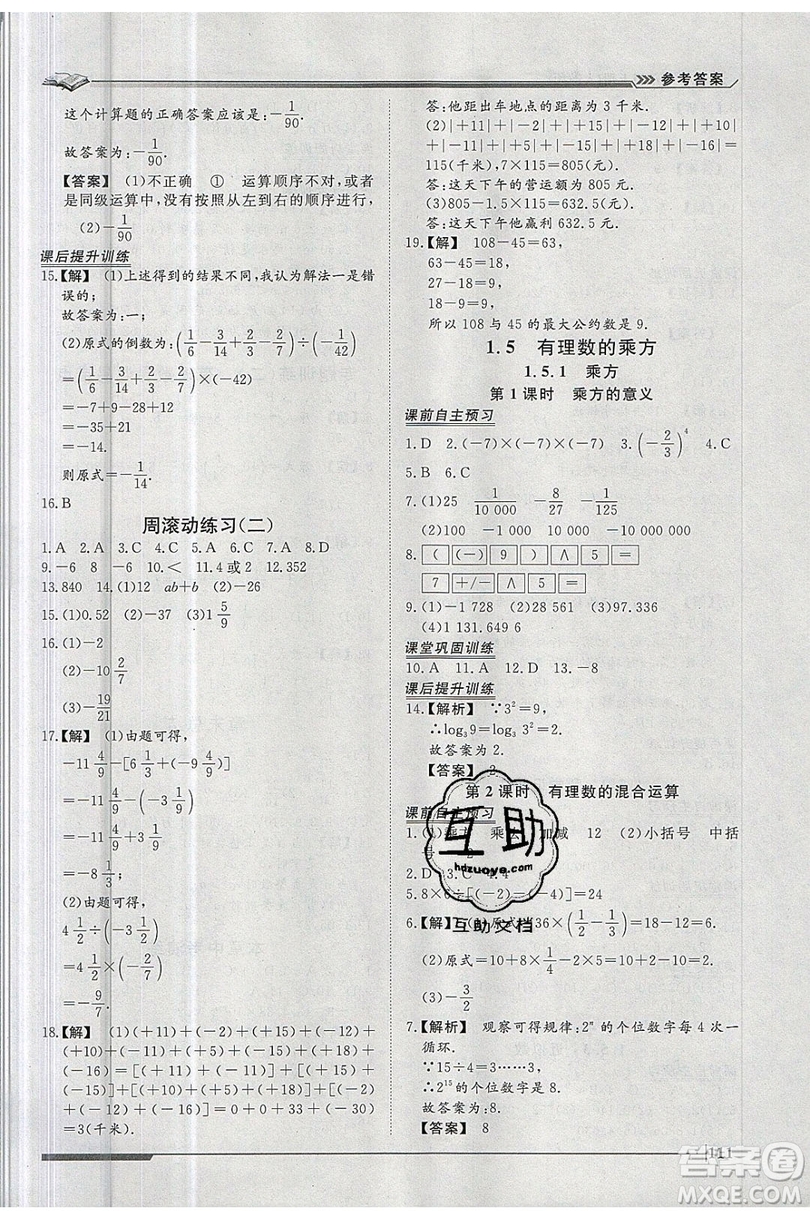 参考答案
这个计算题的正确答案应该是:-1/90.
故答案为:-1/90.
【答案】 (1)不正确 ① 运算顺序不对,或者
是同级运算中,没有按照从左到右的顺序进行
(2)-1/90
课后提升训练
15.【解】 (1)上述得到的结果不同,我认为解法一是错
误的;
故答案为:一;
(2)原式的倒数为:(1/6-3/14+2/3-2/7)÷(-1/42)
=(1/6-3/14+2/3-2/7)×(-42)
=-7+9-28+12
=-35+21
=-14.
则原式=-1/14.
16.B
周滚动练习(二)
1.A 2.A 3.C 4.A 5.C 6.C 7.A 8.D
9.-6 8 -6 10.< 11.4或2 12.352
13.840 14.(1)12 ab+b (2)-6
15.(1)0.52 (2)-37 (3)1 5/9
16.(1)-2
(2)-10 2/7
(3)-19/21
17.【解】 (1)由题可得,
-11 4/9-[6 1/3+(-9 4/9)]
=-11 4/9-(-3 1/9)
=-11 4/9+3 1/9
=-8 1/3;
(2)由题可得,
4 1/2÷(-3 1/2)
=4 1/2×(-2/7)
=-9/7.
18.【解】 (1)(+11)+(-2)+(+15)+(-12)+
(+10)+(-11)+(+5)+(-15)+(+18)+
(-16)=[(+11)+(-11)]+[(+15)+
(-15)]+[(-2)+(-12)+(+10)+(+5)+
(+18)+(-16)]=0+0+33+(-30)
=3(千米).
答:他距出车地点的距离为3千米.
(2)|+11|+|-2|+|+15|+|-12|+|+10|
+|-11|+|+5|+|-15|+|+18|+|-16|=
115(千米),7×115=805(元).
答:这天下午的营运额为805元.
(3)805-1.5×115=632.5(元).
答:这天下午他赢利632.5元.
19.【解】 108-45=63,
63-45=18,
27-18=9,
18-9=9,
所以108与45的最大公约数是9.
1.5 有理数的乘方
1.5.1 乘方
第1课时 乘方的意义
课前自主预习
1.D 2.(-7)×(-7)×(-7) 3.(-2/3)^4 4.C
5.B 6.C
7.(1)25 1/10 000 -8/27 -1/125
(2)100 -1 000 10 000 -10 000 000
8. ( (-) 9 ) ∧ 5 =
7 +/- ∧ 6 =
9.(1)-1 728 (2)28 561 (3)97.336
(4)1 131.649 6
课堂巩固训练
10.A 11.A 12.D 13.-8
课后提升训练
14.【解析】 ∵3²=9,
∴log₃9=log₃3²=2.
故答案为2.
【答案】 2
第2课时 有理数的混合运算
课前自主预习
1.(1)乘方 乘法 加减 12 (2)小括号 中括
号 2
2.D 3.C 4.4
5.8×6÷[-2-(-4)]=24
6.【解】 (1)原式=36×(1/2-1/3)=18-12=6.
(2)原式=10+8×1/4-2×5=10+2-10=2.
(3)-3/2
7.【解析】 观察可得规律:2ⁿ的个位数字每4次一
循环.
∵15÷4=3……3,
∴2¹⁵的个位数字是8.
故答案为:8.
【答案】 8
互助
hdzuoye.com
互助文档
111
答案圈
MXQE.COM